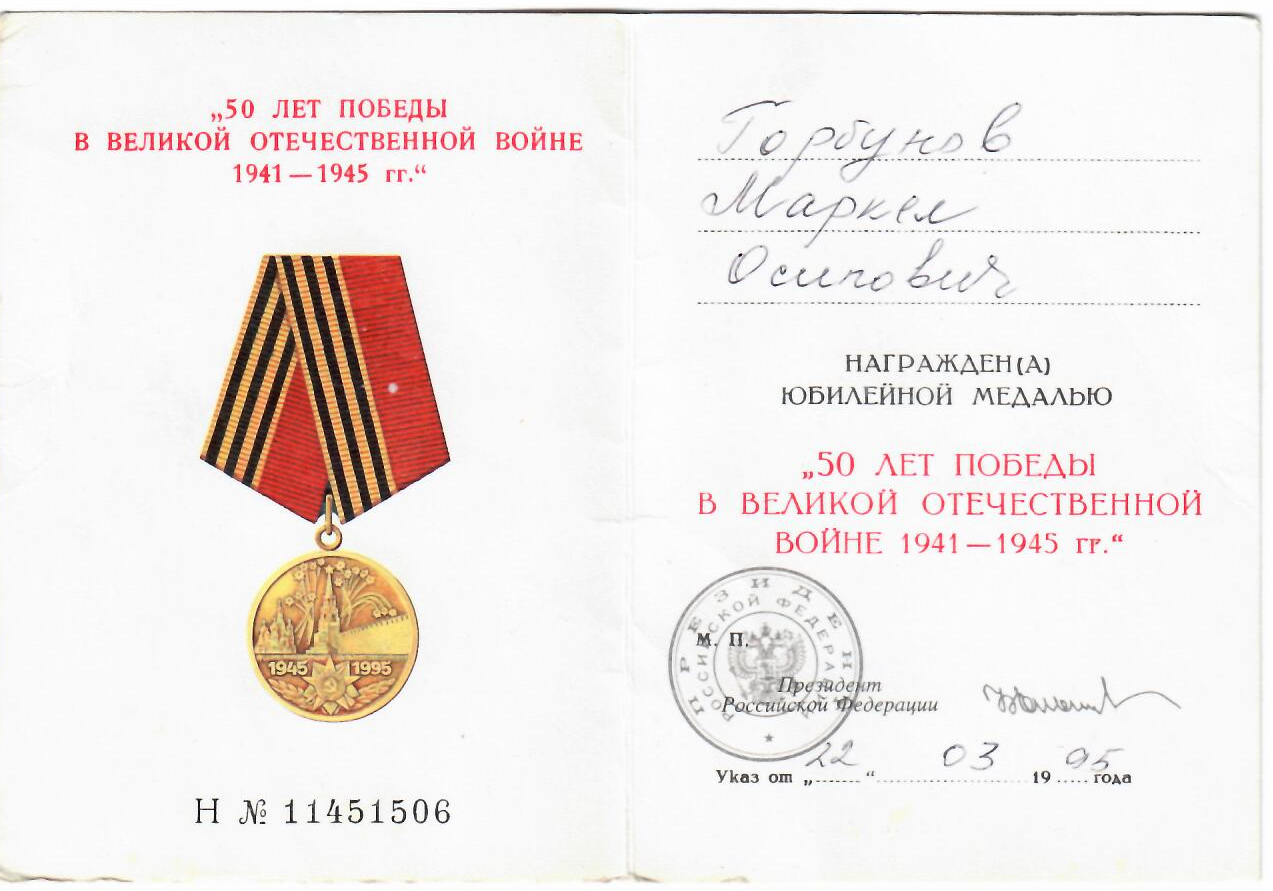 „50 ЛЕТ ПОБЕДЫ
В ВЕЛИКОЙ ОТЕЧЕСТВЕННОЙ ВОЙНЕ
1941—1945 гг.“
1945 1995
Н № 11451506
Горбунов
Маркел
Осипович
НАГРАЖДЕН(А)
ЮБИЛЕЙНОЙ МЕДАЛЬЮ
„50 ЛЕТ ПОБЕДЫ
В ВЕЛИКОЙ ОТЕЧЕСТВЕННОЙ
ВОЙНЕ 1941—1945 гг.“
ПРЕЗИДЕНТ
РОССИЙСКОЙ ФЕДЕРАЦИИ
М. П.
Президент
Российской Федерации
Указ от „22“ 03 1995 года